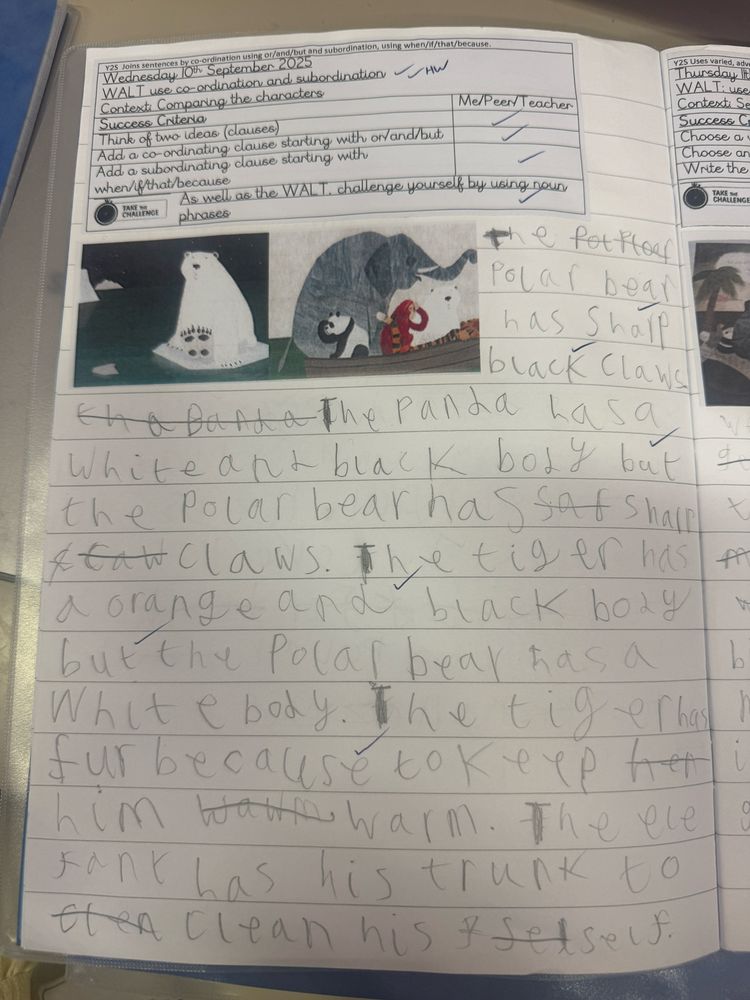 Y2S Joins sentences by co-ordination using or/and/but and subordination, using when/if/that/because.
Wednesday 10th September 2025
WALT use co-ordination and subordination HW
Context: Comparing the characters
Success Criteria Me/Peer/Teacher
Think of two ideas (clauses)
Add a co-ordinating clause starting with or/and/but
Add a subordinating clause starting with
when/if/that/because
TAKE THE CHALLENGE
As well as the WALT, challenge yourself by using noun
phrases
The
Polar bear
has Sharp
black claws
The Panda has a
White and black body but
the Polar bear has sharp
claws. The tiger has
a orange and black body
but the Polar bear has a
White body. The tiger has
fur because to keep
him warm. The ele
fant has his trunk to
clean his self.
Y2S Uses varied, adv
Thursday 11
WALT: use
Context: Se
Success Cr
Choose a
Choose an
Write the
TAKE THE CHALLENGE